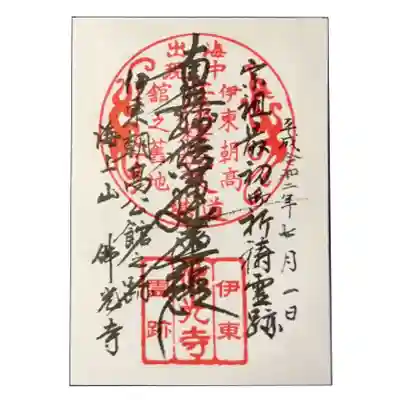 平成令和二年七月一日
宗祖最初御祈祷霊跡
南無妙法蓮華経
伊東朝高公館之跡
海上山 佛光寺
海中
出現
伊東朝高
館之舊地
道
伊東
光寺
霊跡